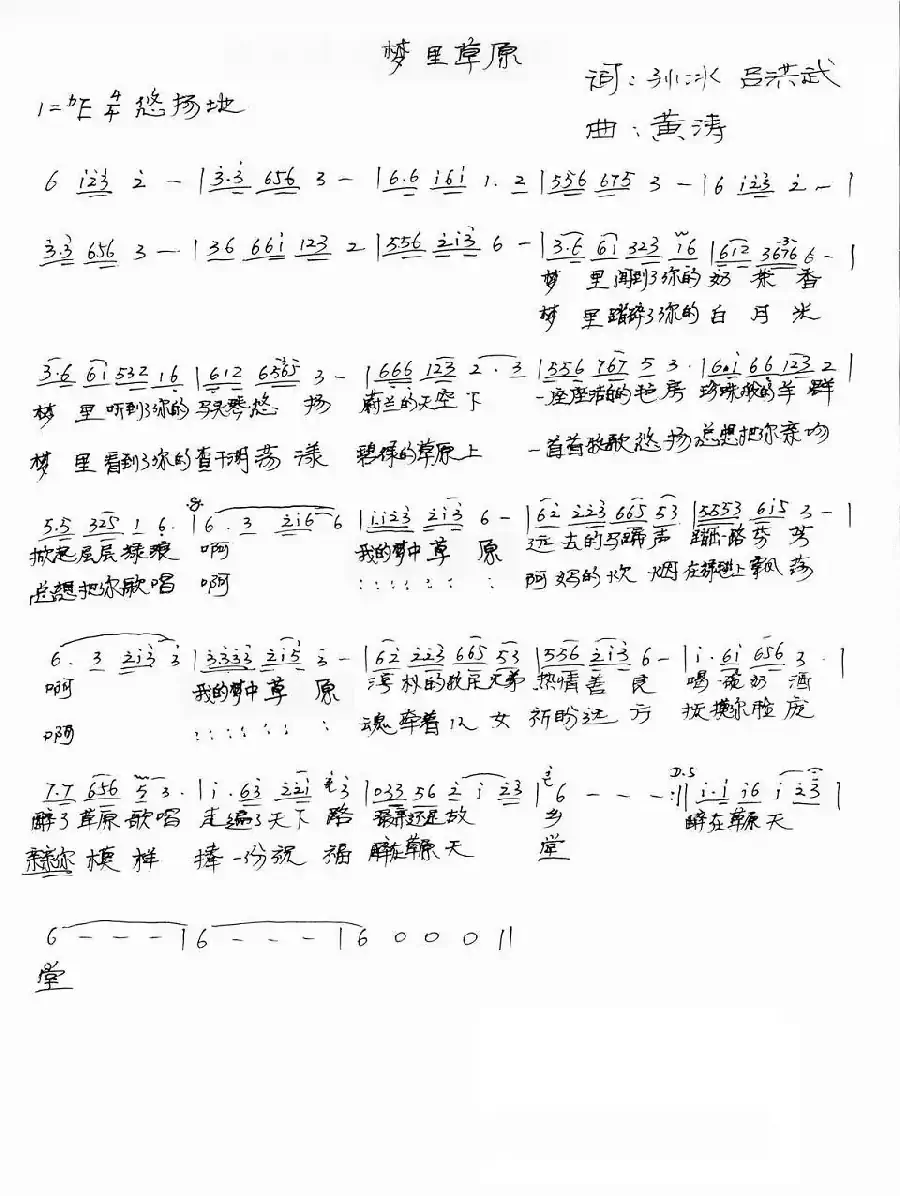 梦里草原
词:孙冰 吕洪武
1=bE 4/4 悠扬地
曲:黄涛
6 123 2 - | 3.3 656 3 - | 6.6 161 1. 2 | 556 675 3 - | 6 123 2 - |
3.3 656 3 - | 36 661 123 2 | 556 213 6 - | 3.6 61 323 16 | 612 3676 6 - |
梦 里闻到了你的 奶 茶 香
梦 里 了你的 白 月 光
3.6 61 532 16 | 612 6565 3 - | 666 123 2 . 3 | 556 767 5 3. | 6.1 66 123 2 |
梦 里 听到了你的 马头琴悠 扬 蔚兰的天空下 一座座 的毡房 羊群
梦 里 看到了你的查干湖荡漾 碧绿的草原上 一首首牧歌悠扬总想把你亲吻
5.5 325 1 6. | 6 . 3 216 6 | 1.123 213 6 - | 62 223 665 53 | 5553 615 3 - |
掀起层层绿浪 啊 我的梦中草 原 远 去的马蹄声 一路芬芳
总想把你歌唱 啊 : : : : : : 阿妈的炊 烟 飘荡
6. 3 213 3 | 3.333 215 3 - | 62 223 665 53 | 556 213 6 - | 1. 61 656 3 . |
啊 我的梦中草 原 淳朴的牧民兄弟 热情善良 喝 奶 酒
啊 : : : : : : 魂牵着儿女 祈盼远方 抚摸你脸庞
7.7 656 5 3. | 1. 63 221 3 | 033 56 2 1 23 | 6 - - - :|| D.S 1.1 16 1 23 |
醉了草原歌唱 走遍了天下路 还是故 乡 醉在草原天
亲亲你模样 捧一份祝福 醉在草原天 堂
6 - - - | 6 - - - | 6 0 0 0 ||
堂